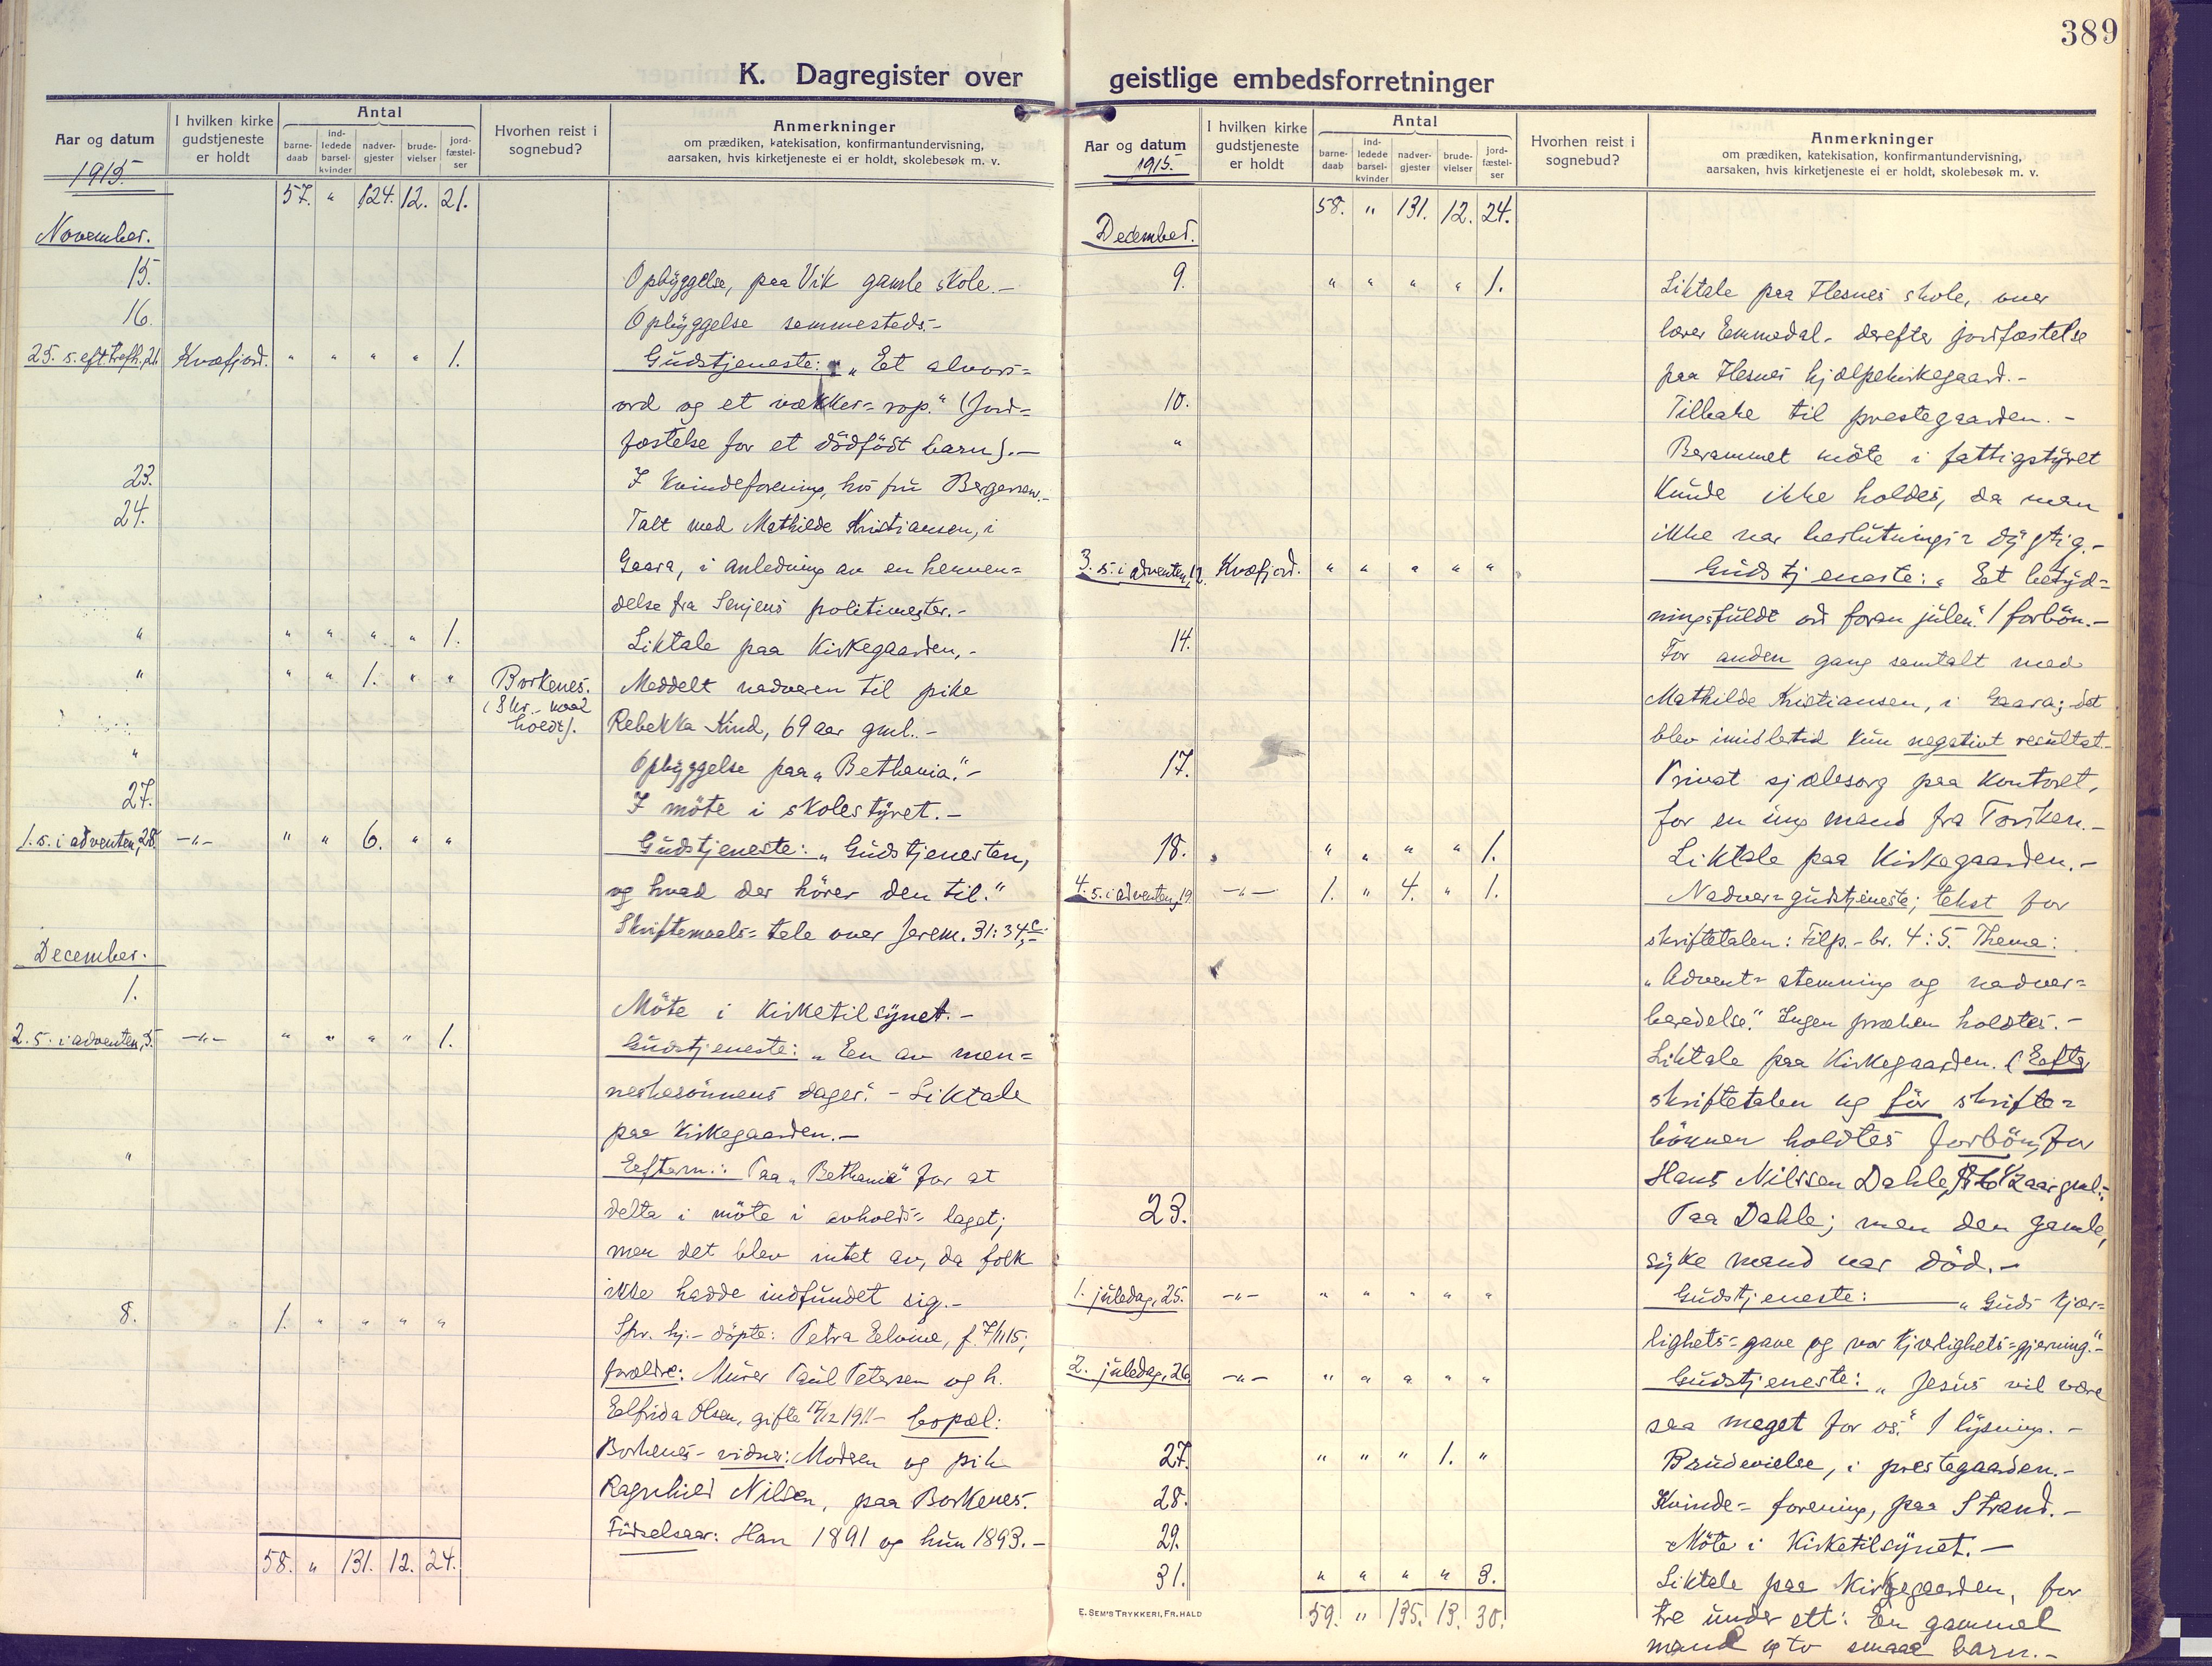 389
K. Dagregister over geistlige embedsforretninger
Aar og datum
1915.
I hvilken kirke gudstjeneste er holdt
Antal
barne-daab
ind-ledede barsel-kvinder
nadver-gjester
brude-vielser
jord-fæstel-ser
Hvorhen reist i sognebud?
Anmerkninger
om prædiken, katekisation, konfirmantundervisning,
aarsaken, hvis kirketjeneste ei er holdt, skolebesøk m. v.
57. " 124. 12. 21.
November.
15. Opbyggelse, paa Vik gamle skole.-
16. Opbyggelse sammesteds.-
25. s. eft. trefh., 21. Kvæfjord. " " " " 1. Gudstjeneste: "Et alvors=
ord og et vækker=rop." (Jord=
fæstelse for et dödfödt barn).-
23. I Kvindeforening, hos fru Bergersen.-
24. Talt med Mathilde Kristiansen, i
Gaara, i anledning av en henven=
delse fra Senjens politimester.-
" " " " " 1. Liktale paa Kirkegaarden.-
" " " 1. " " Borkenes. Meddelt nadveren til pike
holdt). Rebekka Kind, 69 aar gml.-
" Opbyggelse paa "Bethania."-
27. I möte i skolestyret.-
1. s. i adventen, 28. -"- " " 6. " " Gudstjeneste: "Gudstjenesten,
og hvad der hörer den til."
Skriftemaals=tale over Jerem. 31:34c.-
December.
1. Möte i Kirketilsynet.-
2. s. i adventen, 5. -"- " " " " 1. Gudstjeneste: "En av men=
neskesönnens dager." - Liktale
paa Kirkegaarden.-
" Eefterm.: Paa "Bethania" for at
delta i möte i avholds=laget;
men det blev intet av, da folk
ikke hadde indfundet sig.-
8. 1. " " " " Spr. hj.-döpte: Petra Eelvine, f. 7/11 15;
forældre: Murer Paul Petersen og h.
Eelfrida Olsen, gifte 17/12 1911- bopæl:
Borkenes- vidner: Modren og pike
Ragnhild Nilsen, paa Borkenes.
Födselsaar: Han 1891 og hun 1893.-
58. " 131. 12. 24.
Aar og datum
1915.
I hvilken kirke gudstjeneste er holdt
Antal
barne-daab
ind-ledede barsel-kvinder
nadver-gjester
brude-vielser
jord-fæstel-ser
Hvorhen reist i sognebud?
Anmerkninger
om prædiken, katekisation, konfirmantundervisning,
aarsaken, hvis kirketjeneste ei er holdt, skolebesøk m. v.
58. " 131. 12. 24.
December.
9. " " " " 1. Liktale paa Flesnes skole, over
lærer Emmedal- derefter jordfæstelse
paa Flesnes hjælpekirkegaard.-
10. Tilbake til prestegaarden.-
" Berammet möte i fattigstyret
Kunde ikke holdes, da man
ikke var beslutnings=dygtig.-
3. s. i adventen, 12. Kvæfjord. " " " " " Gudstjeneste: "Et betyd=
ningsfuldt ord foran julen." 1 forbön.-
14. For anden gang samtalt med
Mathilde Kristiansen, i Gaara; det
blev imidlertid kun negativt resultat.-
17. Privat sjælesorg paa Kontoret,
for en ung mand fra Torsken.-
18. " " " " 1. Liktale paa Kirkegaarden.-
4. s. i adventen, 19. -"- 1. " 4. " 1. Nadver=gudstjeneste; tekst for
skriftetalen: Filp.-br. 4:5. Thema:
"Advent=stemning og nadver=
beredelse." Ingen præken holdtes.-
Liktale paa Kirkegaarden. (Eefter
skriftetalen og för skrifte=
bönnen holdtes forbön, for
Hans Nilssen Dahle, 1/2 aar gml.-
23. Paa Dahle; men den gamle,
syke mand var död.-
1. juledag, 25. -"- " " " " " Gudstjeneste: "Guds kjær=
lighets=gave og vor kjærlighets=gjerning."-
2. juledag, 26. -"- " " " " " Gudstjeneste: "Jesus vil være
saa meget for os." 1 lysning.-
27. " " " 1. " Brudevielse, i prestegaarden.-
28. Kvinde=forening, paa Strand.-
29. Möte i Kirketilsynet.-
31. " " " " 3. Liktale paa Kirkegaarden, for
tre under ett: En gammel
mand og to smaae barn.-
59. " 135. 13. 30.
E. SEM'S TRYKKERI, FR.HALD